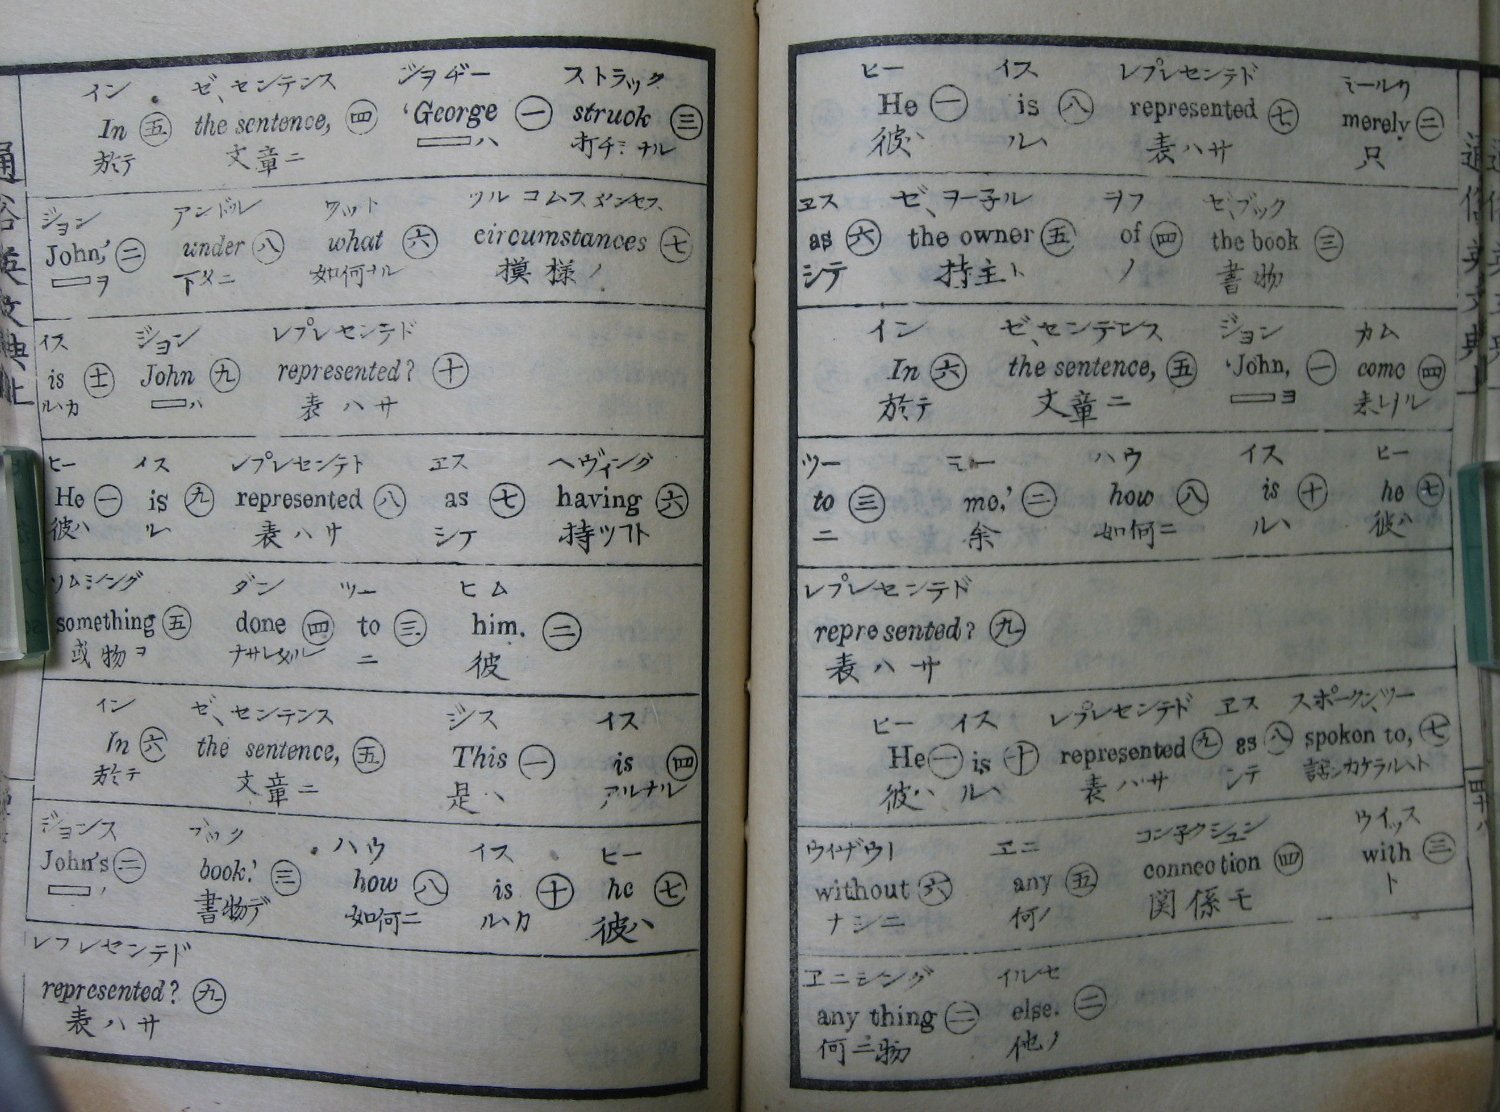 イン ゼ、センテンス ジヨヂー ストラック
In 五 the sentence, 四 ‘George 一 struck 三
於テ 文章ニ ハ 打チシナル
ジヨン アンドル ワット
John,’ 二 under 八 what 六 circumstances 七
ヲ 下タニ 如何ナル 模様ノ
イス ジヨン レプレセンテド
is 十一 John 九 represented? 十
ルハカ ハ 表ハサ
ヒー イス レプレセンテド ヱス ヘヴィング
He 一 is 九 represented 八 as 七 having 六
彼ハ ル 表ハサ シテ 持ツフト
ソムシング ダン ツー ヒム
something 五 done 四 to 三 him. 二
或物ヲ ナサレタル ニ 彼
イン ゼ、センテンス ジス イス
In 六 the sentence, 五 This 一 is 四
於テ 文章ニ 是ハ アルナル
ジヨンス ブック ハウ イス ヒー
John's 二 book.’ 三 how 八 is 十 he 七
ノ 書物デ 如何ニ ルハカ 彼ハ
レプレセンテド
represented? 九
表ハサ
ヒー イス レプレセンテド ミールリ
He 一 is 八 represented 七 merely 二
彼ハ ルハ 表ハサ 只
ヱス ゼ、ヲー子ル ヲフ ゼ、ブック
as 六 the owner 五 of 四 the book 三
シテ 持主ト ノ 書物
イン ゼ、センテンス ジヨン カム
In 六 the sentence, 五 ‘John, 一 come 四
於テ 文章ニ ヨ 来レナル
ツー ミー ハウ イス ヒー
to 三 me,’ 二 how 八 is 十 he 七
ニ 余 如何ニ ルハ 彼ハ
レプレセンテド
represented? 九
表ハサ
ヒー イス レプレセンテド ヱス スポークン、ツー
He 一 is 十 represented 九 as 八 spoken to, 七
彼ハ ルハ 表ハサ シテ 話シカケラルヽト
ウイザウト ヱニ コン子クシュン ウイッス
without 六 any 五 connection 四 with 三
ナシニ 何ノ 関係モ ト
ヱニシング イルセ
any thing 二 else. 二
何ニ物 他ノ
通俗英文典上
四十八